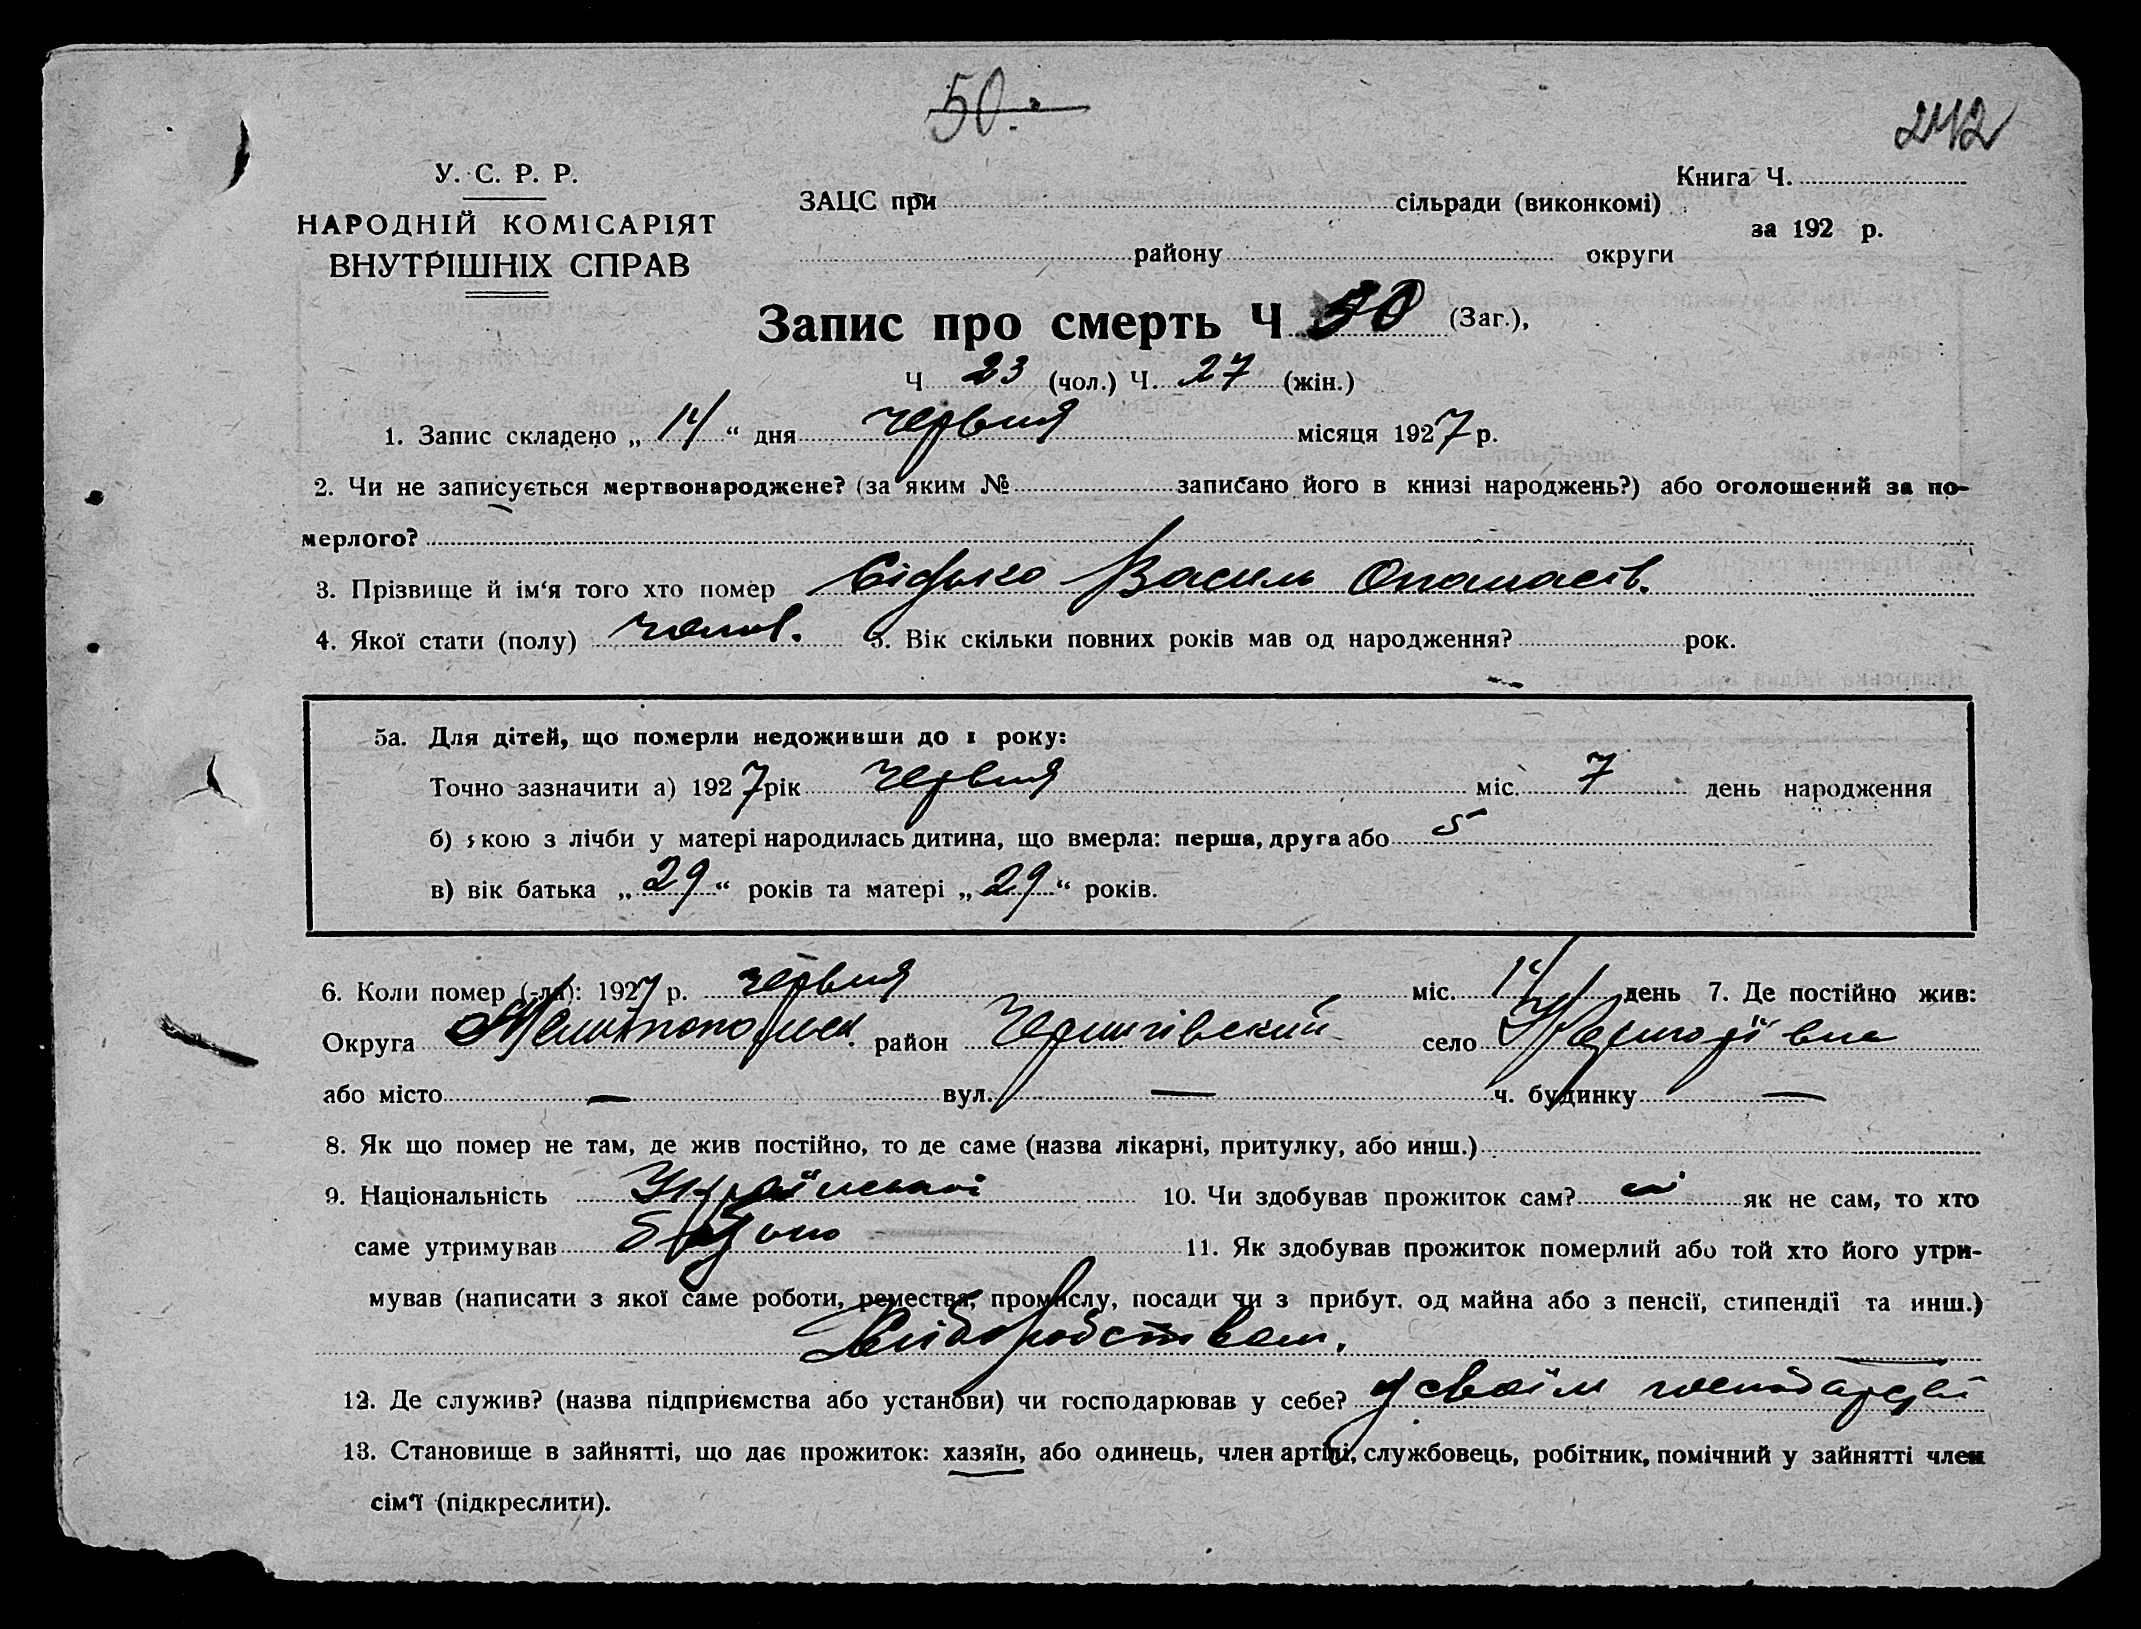 50.
242
У. С. Р. Р.
НАРОДНІЙ КОМІСАРІЯТ
ВНУТРІШНІХ СПРАВ
ЗАЦС при сільради (виконкомі)
району округи
Книга Ч.
за 192 р.
Запис про смерть Ч 50 (Заг.),
Ч 23 (чол.) Ч. 27 (жін.)
1. Запис складено „ 14 “ дня червня місяця 1927 р.
2. Чи не записується мертвонароджене? (за яким № записано його в книзі народжень?) або оголошений за по-
мерлого?
3. Прізвище й ім‘я того хто помер Сідько Василь Опанасів.
4. Якої стати (полу) чолов. 5. Вік скільки повних років мав од народження? рок.
5а. Для дітей, що померли недоживши до 1 року:
Точно зазначити а) 1927 рік червня міс. 7 день народження
б) якою з лічби у матері народилась дитина, що вмерла: перша, друга або 5
в) вік батька „ 29 “ років та матері „ 29 “ років.
6. Коли помер (-ла): 1927 р. червня міс. 14 день 7. Де постійно жив:
Округа Мелітопольск. район Чернигівский село
або місто — вул. — ч. будинку —
8. Як що помер не там, де жив постійно, то де саме (назва лікарні, притулку, або инш.)
9. Національність 10. Чи здобував прожиток сам? ні як не сам, то хто
саме утримував батько 11. Як здобував прожиток померлий або той хто його утри-
мував (написати з якої саме роботи, ремества, промислу, посади чи з прибут. од майна або з пенсії, стипендії та инш.)
Хліборобством.
12. Де служив? (назва підприємства або установи) чи господарював у себе? у своїм господарстві
13. Становище в зайнятті, що дає прожиток: хазяїн, або одинець, член артілі, службовець, робітник, помічний у зайнятті член
сім‘ї (підкреслити).